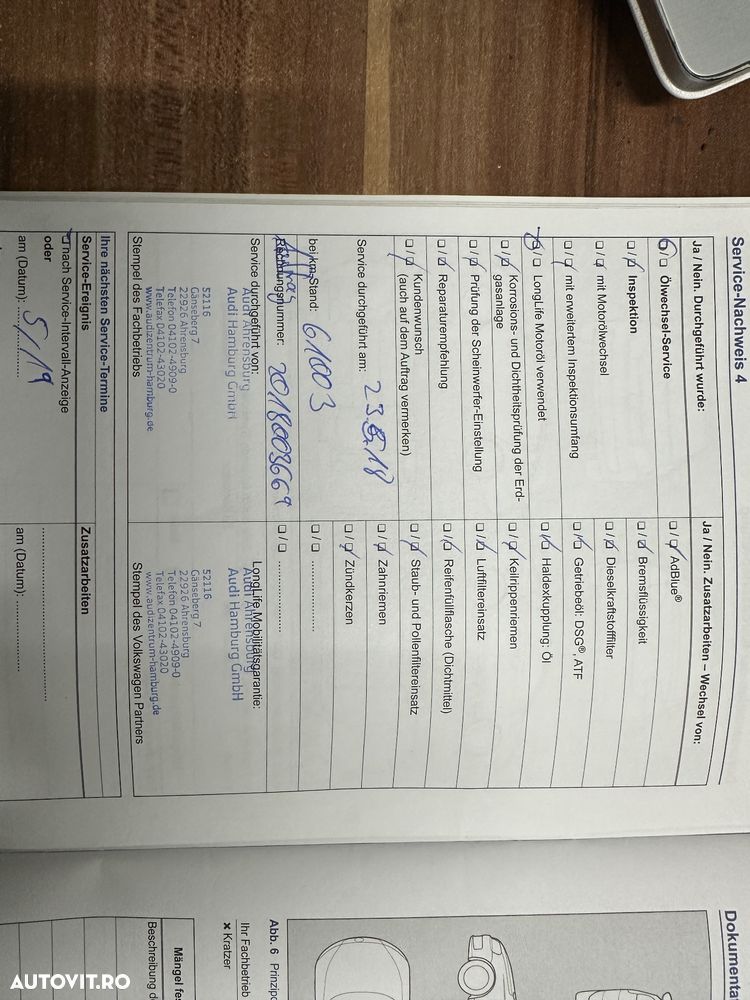 Service-Nachweis 4
Ja / Nein. Durchgeführt wurde:
Ölwechsel-Service
Inspektion
mit Motorölwechsel
mit erweitertem Inspektionsumfang
LongLife Motoröl verwendet
Korrosions- und Dichtheitsprüfung der Erd-
gasanlage
Prüfung der Scheinwerfer-Einstellung
Reparaturempfehlung
Kundenwunsch
(auch auf dem Auftrag vermerken)
Service durchgeführt am: 23.5.18
bei km-Stand: 61003
Rechnungsnummer: 2018003669
Service durchgeführt von:
Audi Ahrensburg
Audi Hamburg GmbH
52116
Gänseberg 7
22926 Ahrensburg
Telefon 04102-4909-0
Telefax 04102-43020
www.audizentrum-hamburg.de
Stempel des Fachbetriebs
Ja / Nein. Zusatzarbeiten – Wechsel von:
AdBlue®
Bremsflüssigkeit
Dieselkraftstofffilter
Getriebeöl: DSG®, ATF
Haldexkupplung: Öl
Keilrippenriemen
Luftfiltereinsatz
Reifenfüllflasche (Dichtmittel)
Staub- und Pollenfiltereinsatz
Zahnriemen
Zündkerzen
LongLife Mobilitätsgarantie:
Audi Ahrensburg
Audi Hamburg GmbH
52116
Gänseberg 7
22926 Ahrensburg
Telefon 04102-4909-0
Telefax 04102-43020
www.audizentrum-hamburg.de
Stempel des Volkswagen Partners
Ihre nächsten Service-Termine
Service-Ereignis
Zusatzarbeiten
nach Service-Intervall-Anzeige
oder
am (Datum): 5/19
am (Datum):
Dokumenta
Abb. 6
Ihr Fachbetrieb
x Kratzer
Mängel fes
Beschreibung d
AUTOVIT.RO